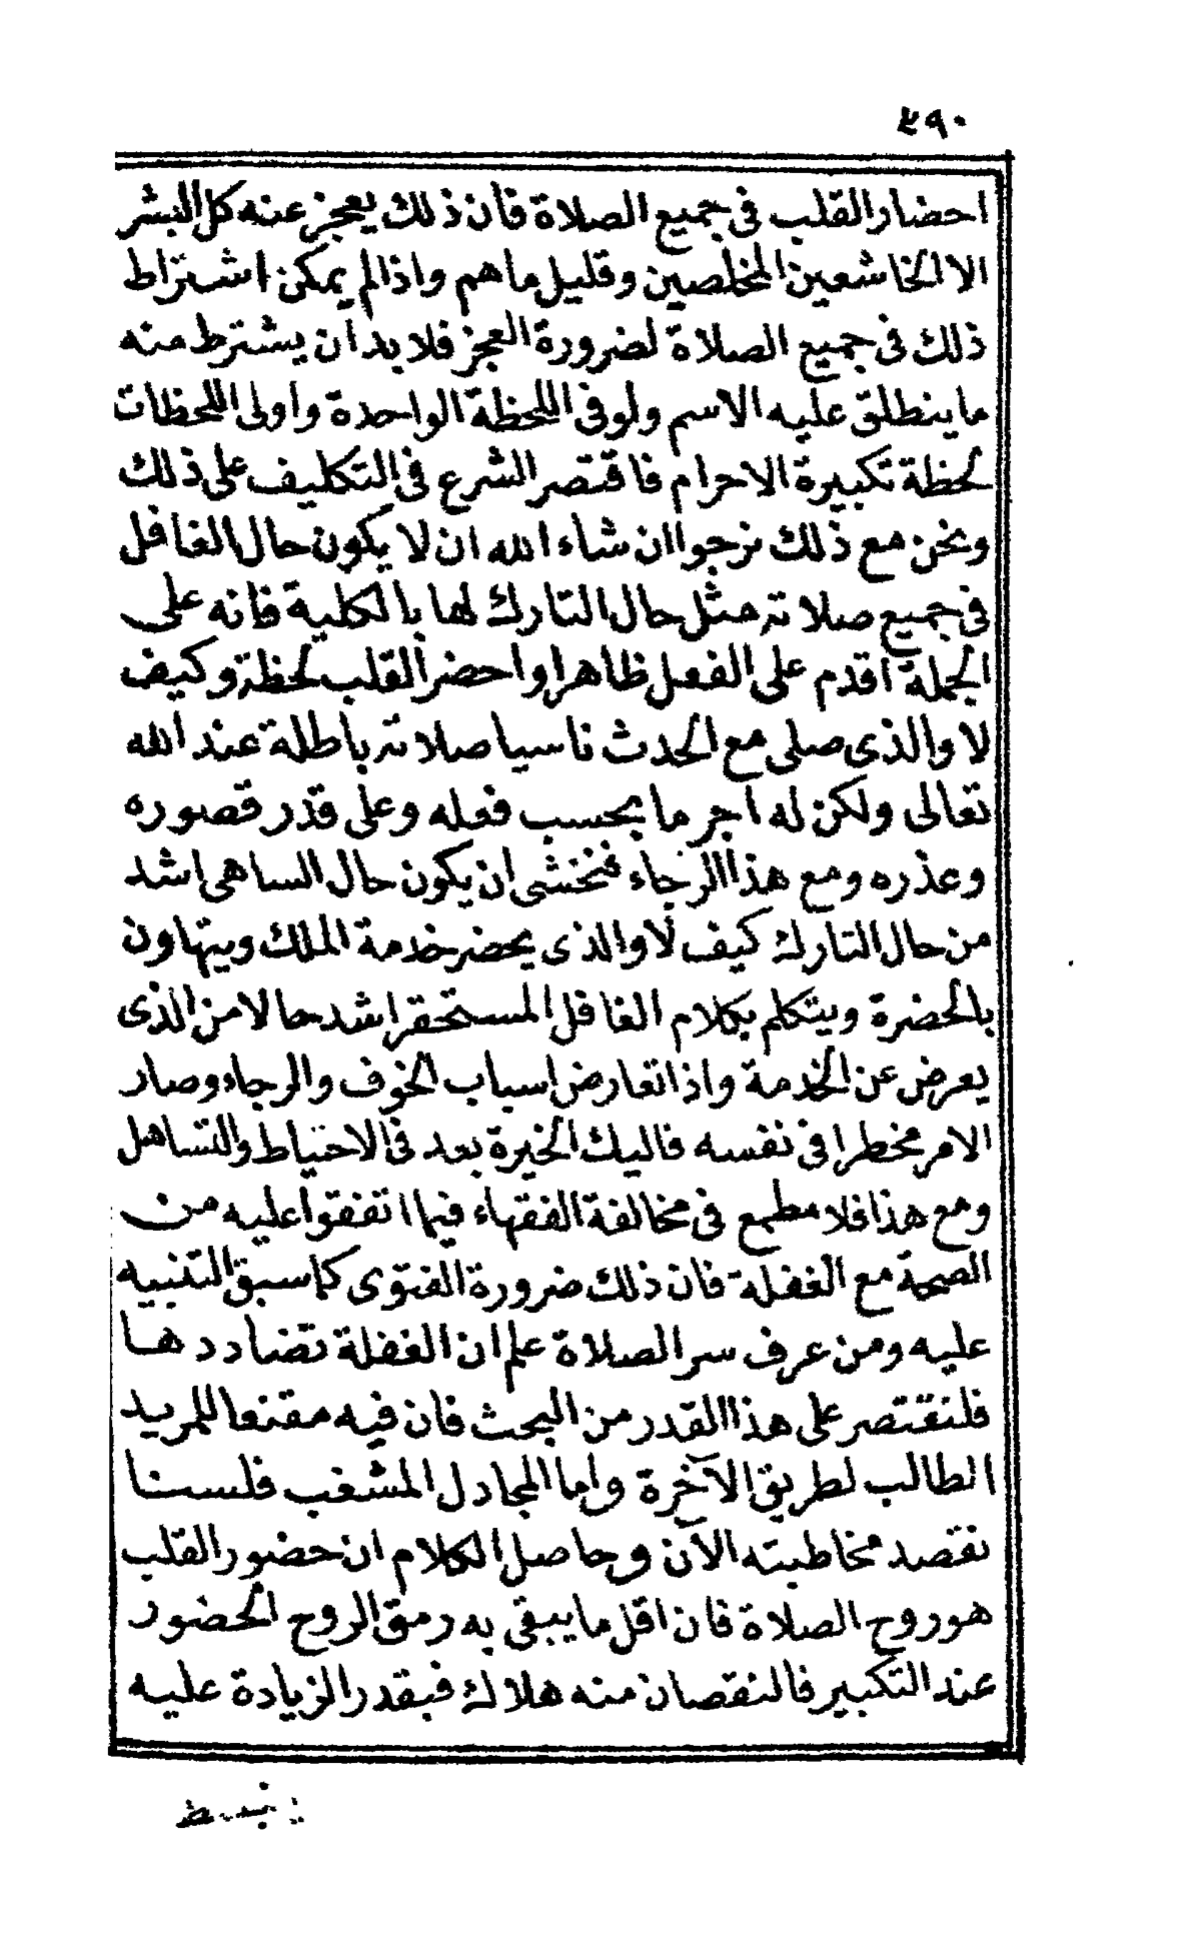 ٤٩٠
احضار القلب فى جميع الصلاة فان ذلك يعجز عنه كل البشر
الا الخاشعين المخلصين وقليل ما هم واذا لم يمكن اشتراط
ذلك فى جميع الصلاة لضرورة العجز فلا بد ان يشترط منه
ما ينطلق عليه الاسم ولو فى اللحظة الواحدة واولى اللحظات
لحظة تكبيرة الاحرام فاقتصر الشرع فى التكليف على ذلك
ونحن مع ذلك نرجوا ان شاء الله ان لا يكون حال الغافل
فى جميع صلاته مثل حال التارك لها بالكلية فانه على
الجملة اقدم على الفعل ظاهرا واحضر القلب لحظة وكيف
لا والذى صلى مع الحدث ناسيا صلاته باطلة عند الله
تعالى ولكن له اجر ما بحسب فعله وعلى قدر قصوره
وعذره ومع هذا الرجاء فنخشى ان يكون حال الساهى اشد
من حال التارك كيف لا والذى يحضر خدمة الملك ويتهاون
بالحضرة ويتكلم بكلام الغافل المستحقر اشد حالا من الذى
يعرض عن الخدمة واذا تعارض اسباب الخوف والرجاء وصار
الامر مخطرا فى نفسه فاليك الخيرة بعد فى الاحتياط والتساهل
ومع هذا فلا مطمع فى مخالفة الفقهاء فيما اتفقوا عليه من
الصحة مع الغفلة فان ذلك ضرورة الفتوى كما سبق التنبيه
عليه ومن عرف سر الصلاة علم ان الغفلة تضادد ها
فلنقتصر على هذا القدر من البحث فان فيه مقنعا للمريد
الطالب لطريق الآخرة واما المجادل المشغب فلسنا
نقصد مخاطبته الآن وحاصل الكلام ان حضور القلب
هو روح الصلاة فان اقل ما يبقى به رمق الروح الحضور
عند التكبير فالنقصان منه هلاك فبقدر الزيادة عليه